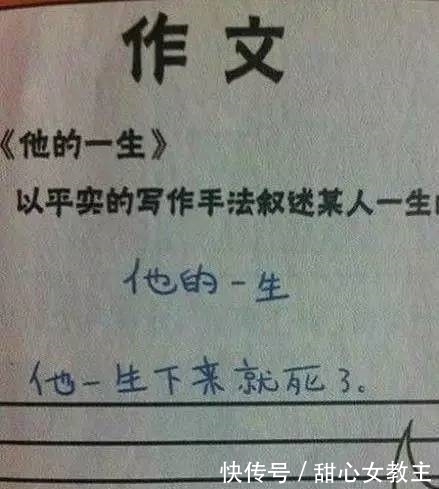 作文
《他的一生》
以平实的写作手法叙述某人一生的
他的一生
他一生下来就死了。
快传号／甜心女教主